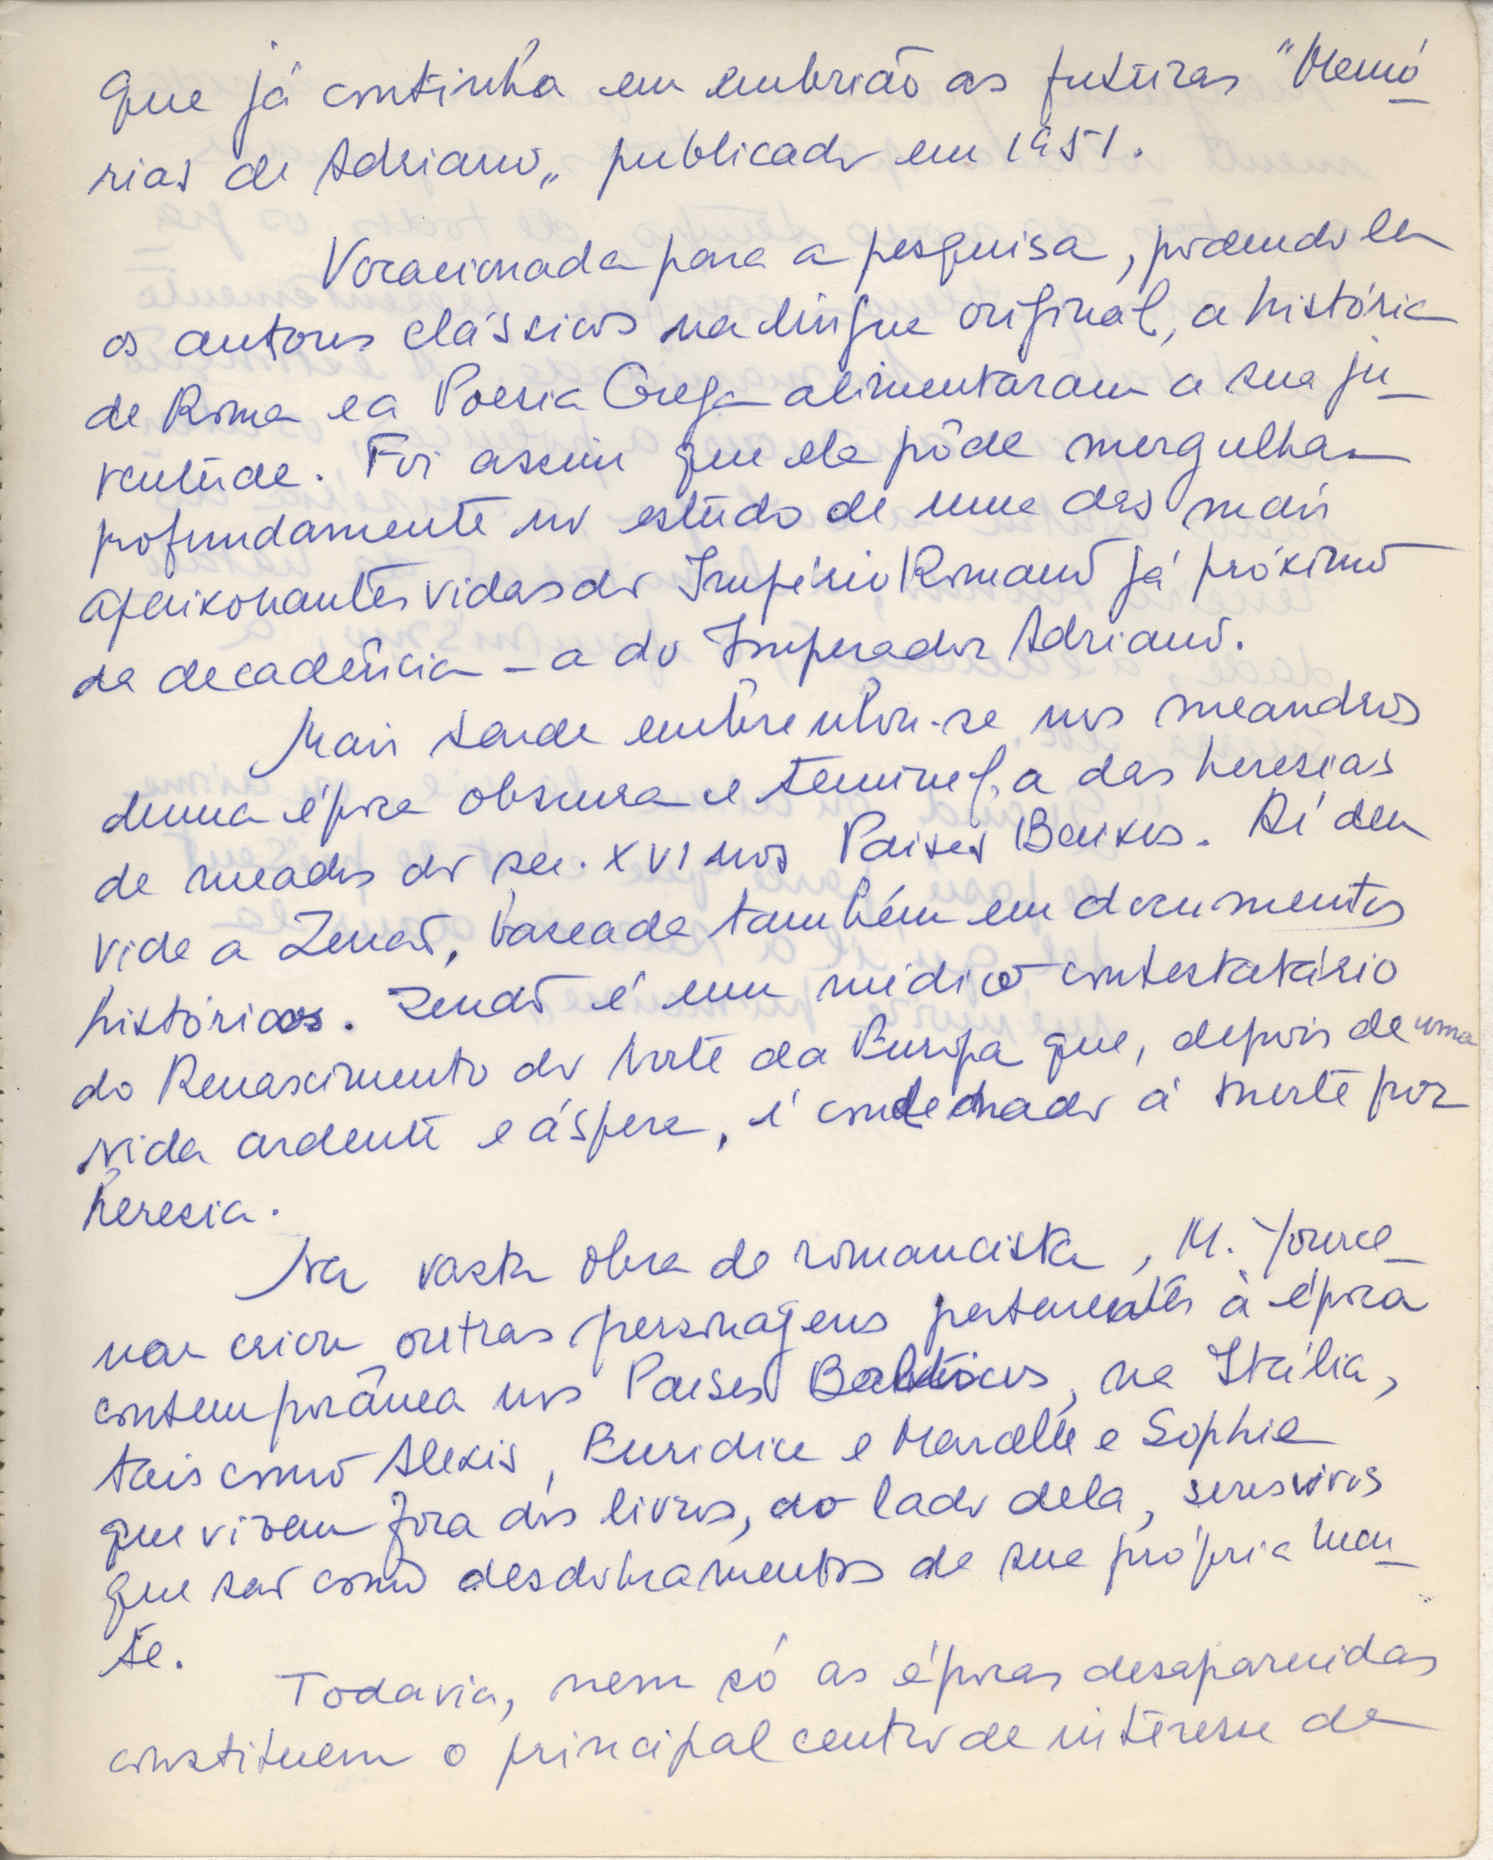 que já continha em embrião as futuras "Memó
rias de Adriano", publicado em 1951.
Vocacionada para a pesquisa, podendo ler
os autores clássicos na língua original, a história
de Roma e a Poesia Grega alimentaram a sua ju
ventude. Foi assim que ela pôde mergulhar
profundamente no estudo de uma das mais
apaixonantes vidas do Império Romano já próximo
da decadência – a do Imperador Adriano.
Mais tarde embrenhou-se nos meandros
duma época obscura e temível, a das heresias
de meados do sec. XVI nos Países Baixos. Aí deu
vida a Zenão, baseada também em documentos
históricos. Zenão é um médico contestatário
do Renascimento do Norte da Europa que, depois de uma
vida ardente e áspera, é condenado à morte por
heresia.
Na vasta obra de romancista, M. Yource
nar criou outras personagens pertencentes à época
contemporânea nos Países Bálticos, na Itália,
tais como Alexis, Euridice e Marcelle e Sophie
que vivem fora dos livros, ao lado dela, seres vivos
que são como desdobramentos de sua própria men
te.
Todavia, nem só as épocas desaparecidas
constituem o principal centro de interesse da